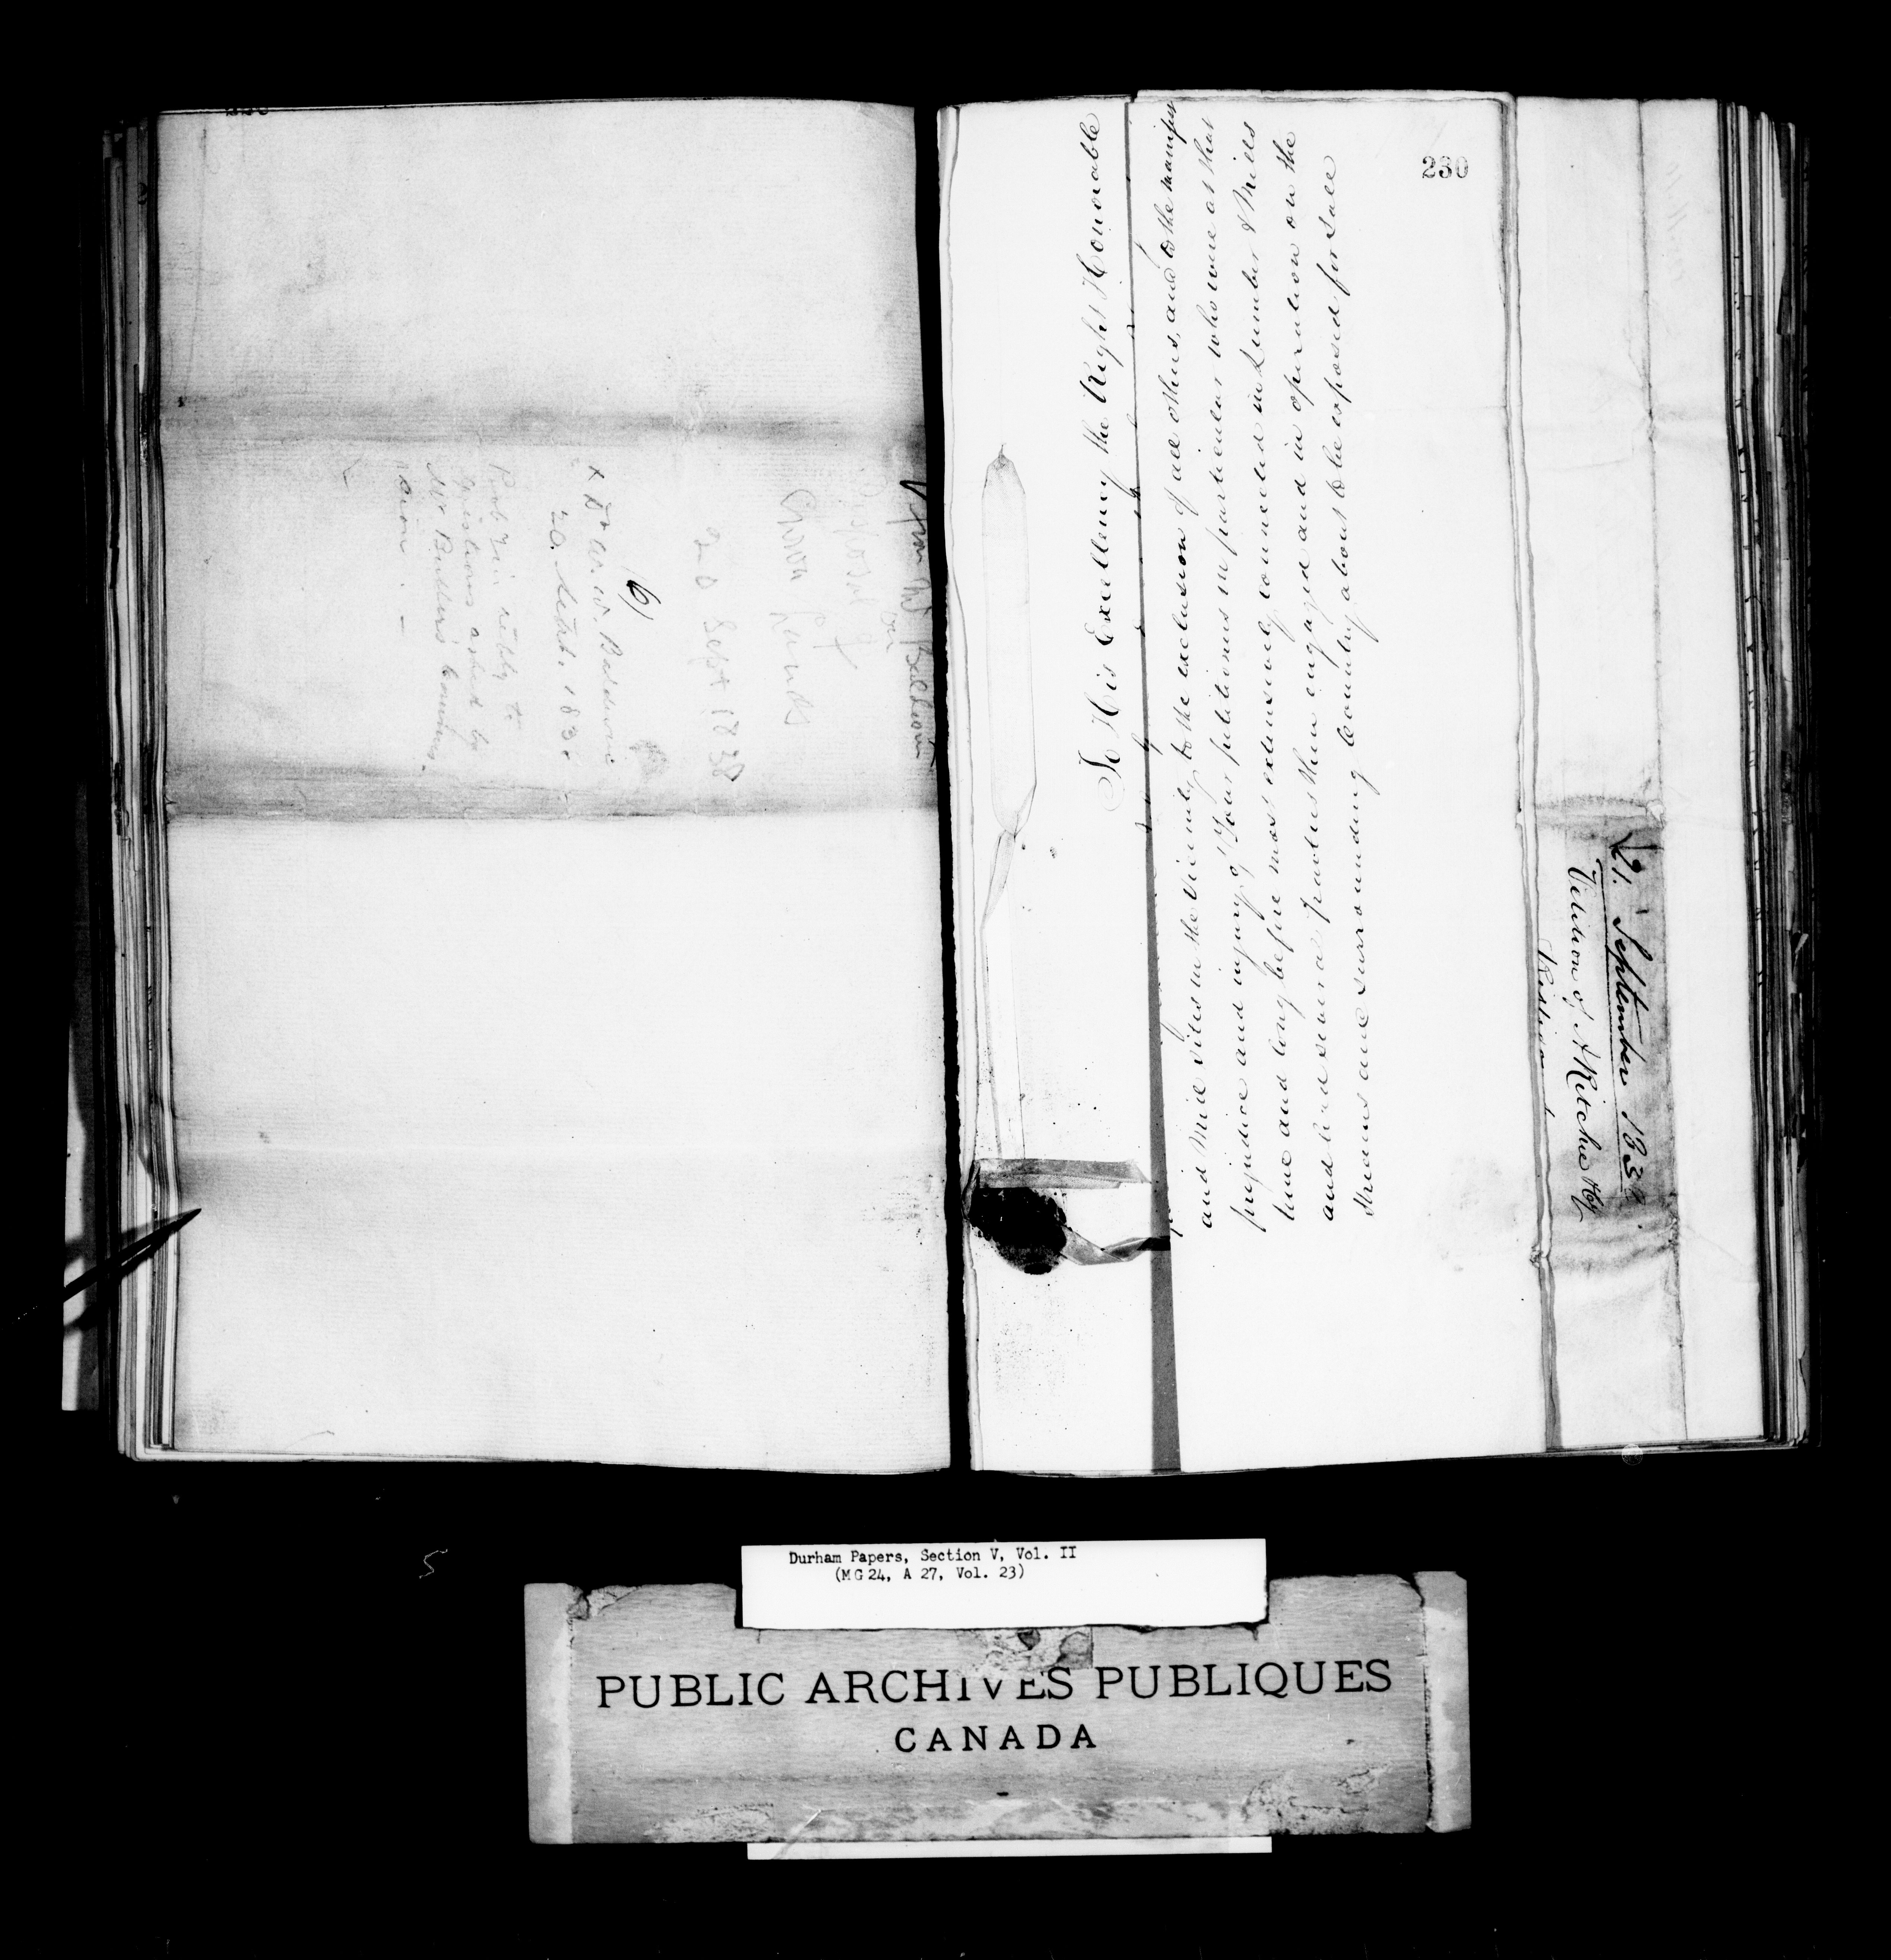 Wm W Baldwin
on
Disposal of
Crown Lands
20 Sept 1838
6)
x Dr. W. W. Baldwin
20. Septr. 1838
Rob in reply to
questions asked by
Mr Buller's Commis-
sion. —
230
To His Excellency the Right Honorable
and Mill sites in the vicinity to the exclusion of all others, and to the manifest
prejudice and injury of Your petitioners in particular who were at that
time and long before most extensively connected in Lumber & Mills
and had several parties then engaged and in operation on the
streams and surrounding Country about to be exposed for sale
21. September 1838.
Petition of A Ritchie Esq
Durham Papers, Section V, Vol. II
(MG 24, A 27, Vol. 23)
PUBLIC ARCHIVES PUBLIQUES
CANADA
5